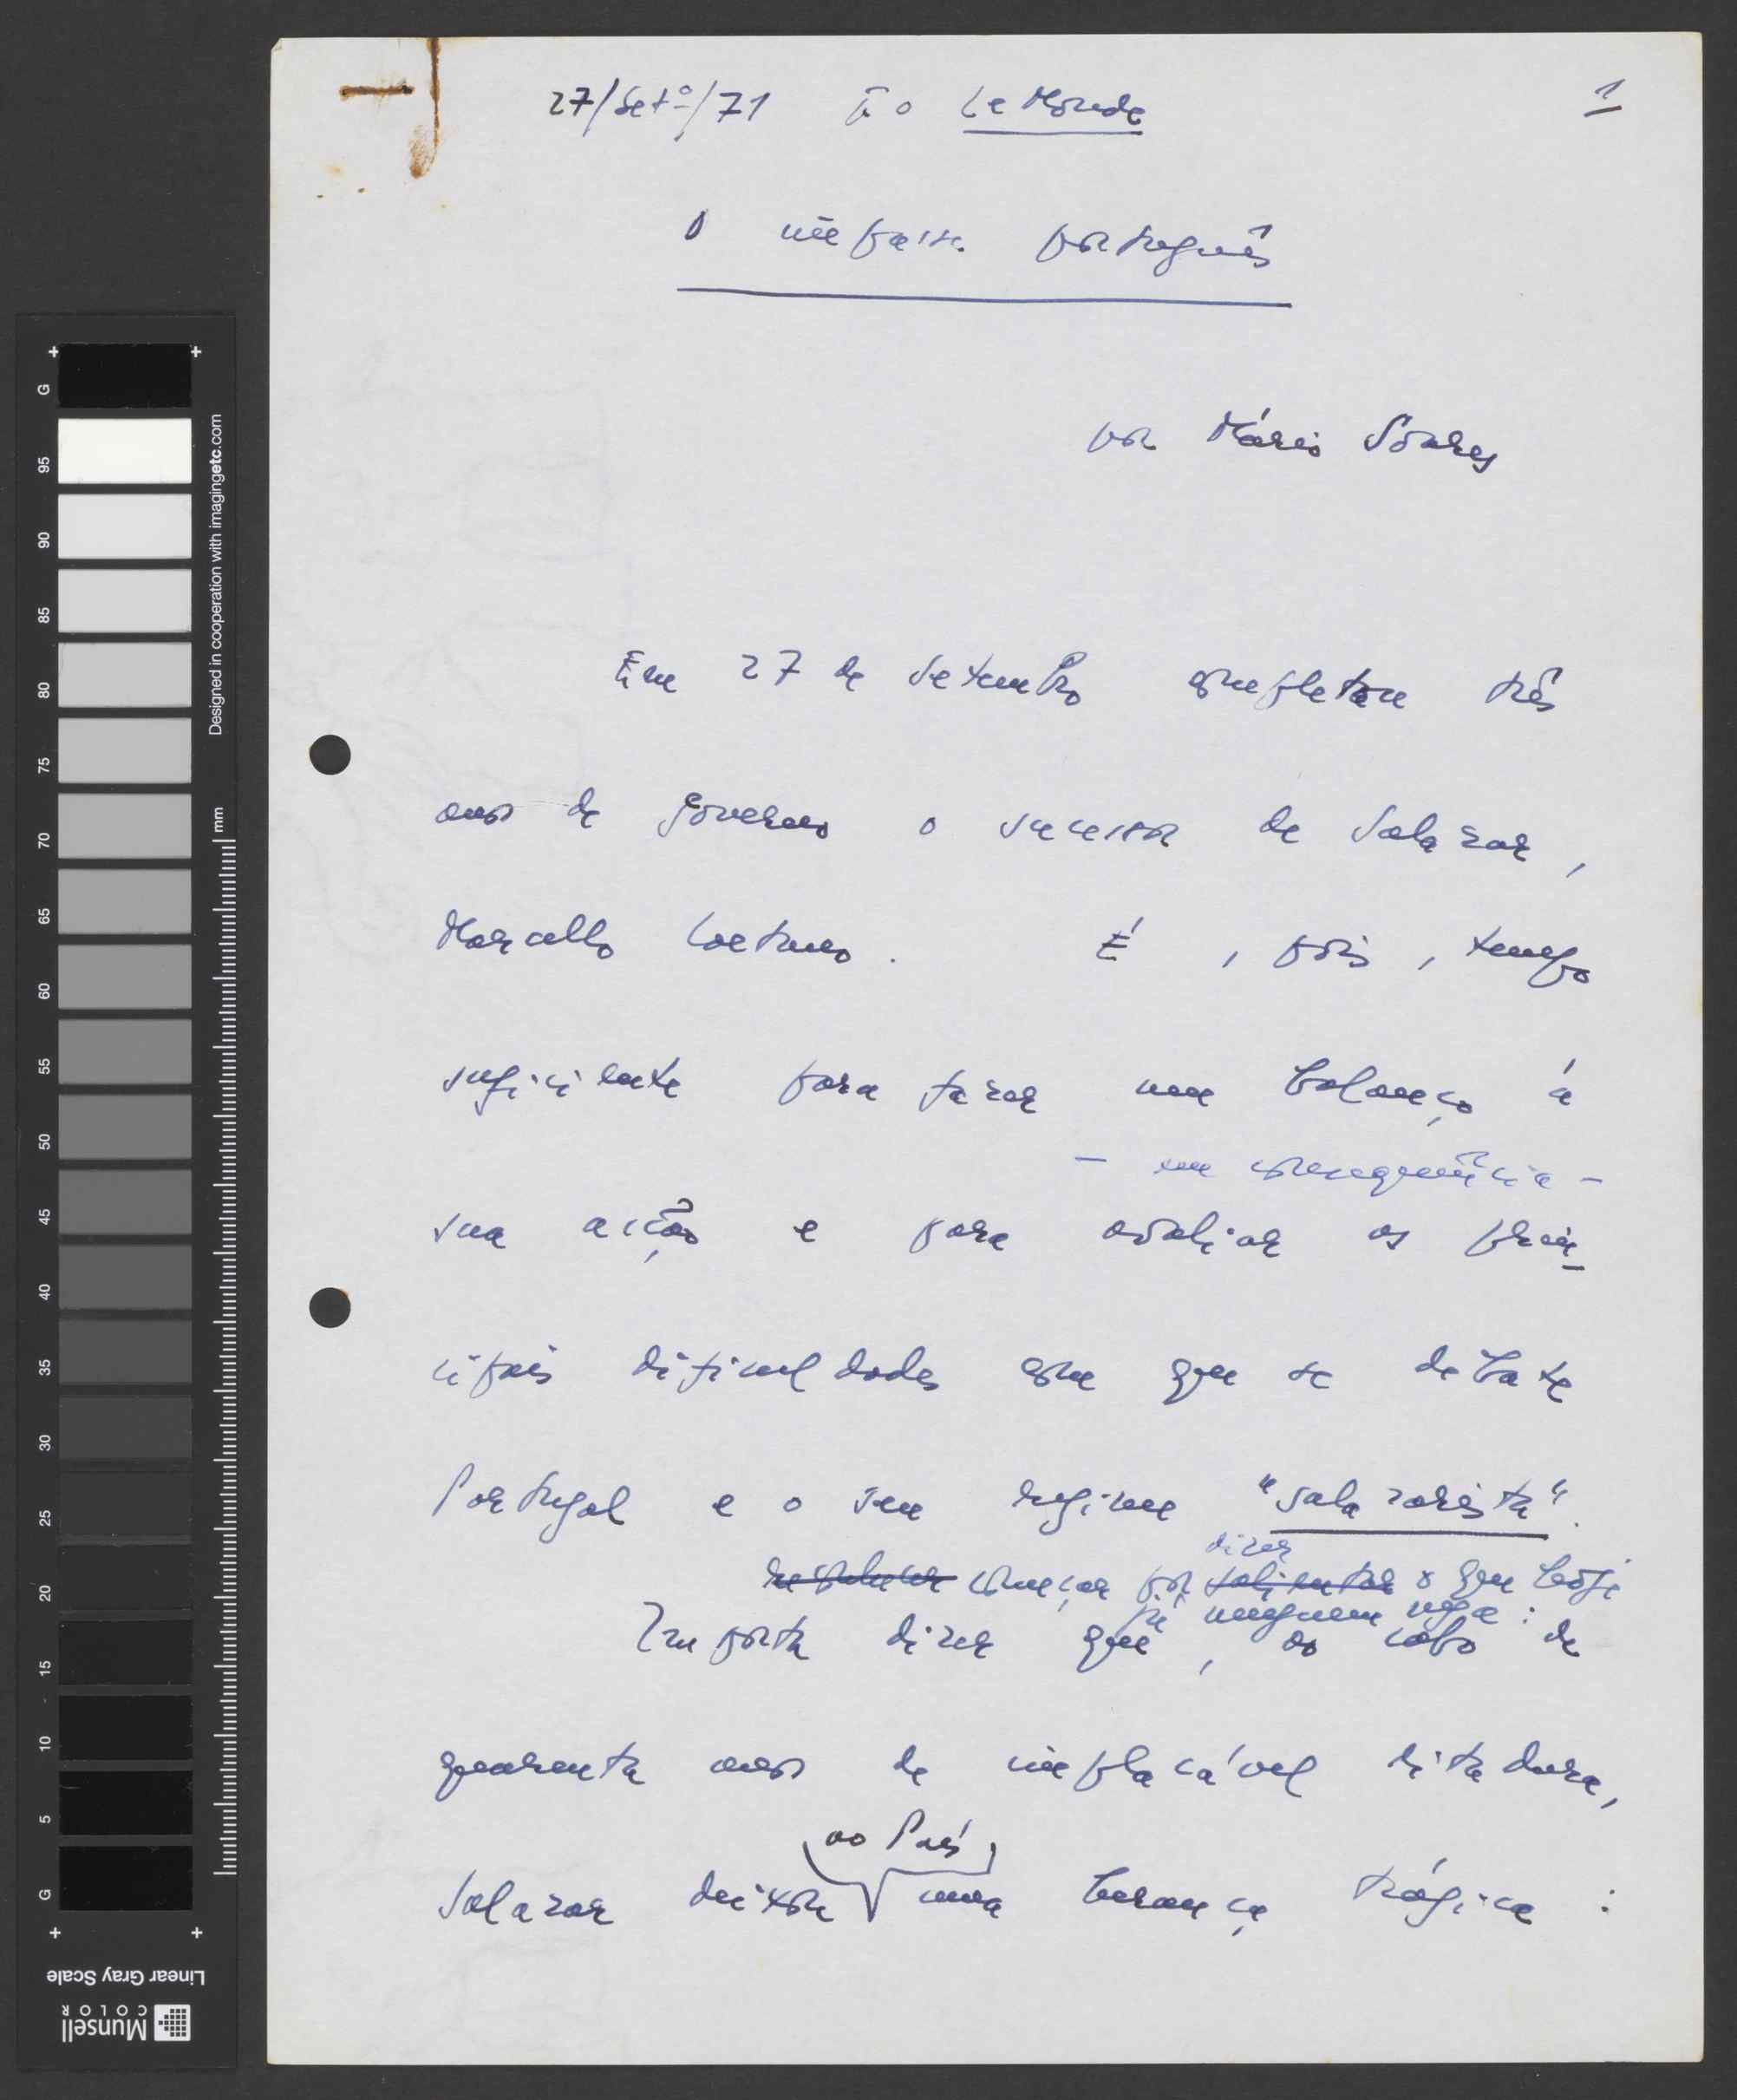 27/Setº/71 Pª o Le Monde
1
O impasse português
por Mário Soares
Em 27 de Setembro completou três
anos de governo o sucessor de Salazar,
Marcello Caetano. É, pois, tempo
suficiente para fazer um balanço à
- em consequência -
sua acção e para avaliar as prin-
cipais dificuldades com que se debate
Portugal e o seu regime "salazarista".
dizer
começar por salientar o que hoje
já ninguem nega:
Importa dizer que, ao cabo de
quarenta anos de implacável ditadura,
ao País
Salazar deixou uma herança trágica:
G
95
90
85
80
75
70
65
60
55
50
45
40
35
30
25
20
15
10
5
G
Designed in cooperation with imagingetc.com
mm
Linear Gray Scale
Munsell
COLOR